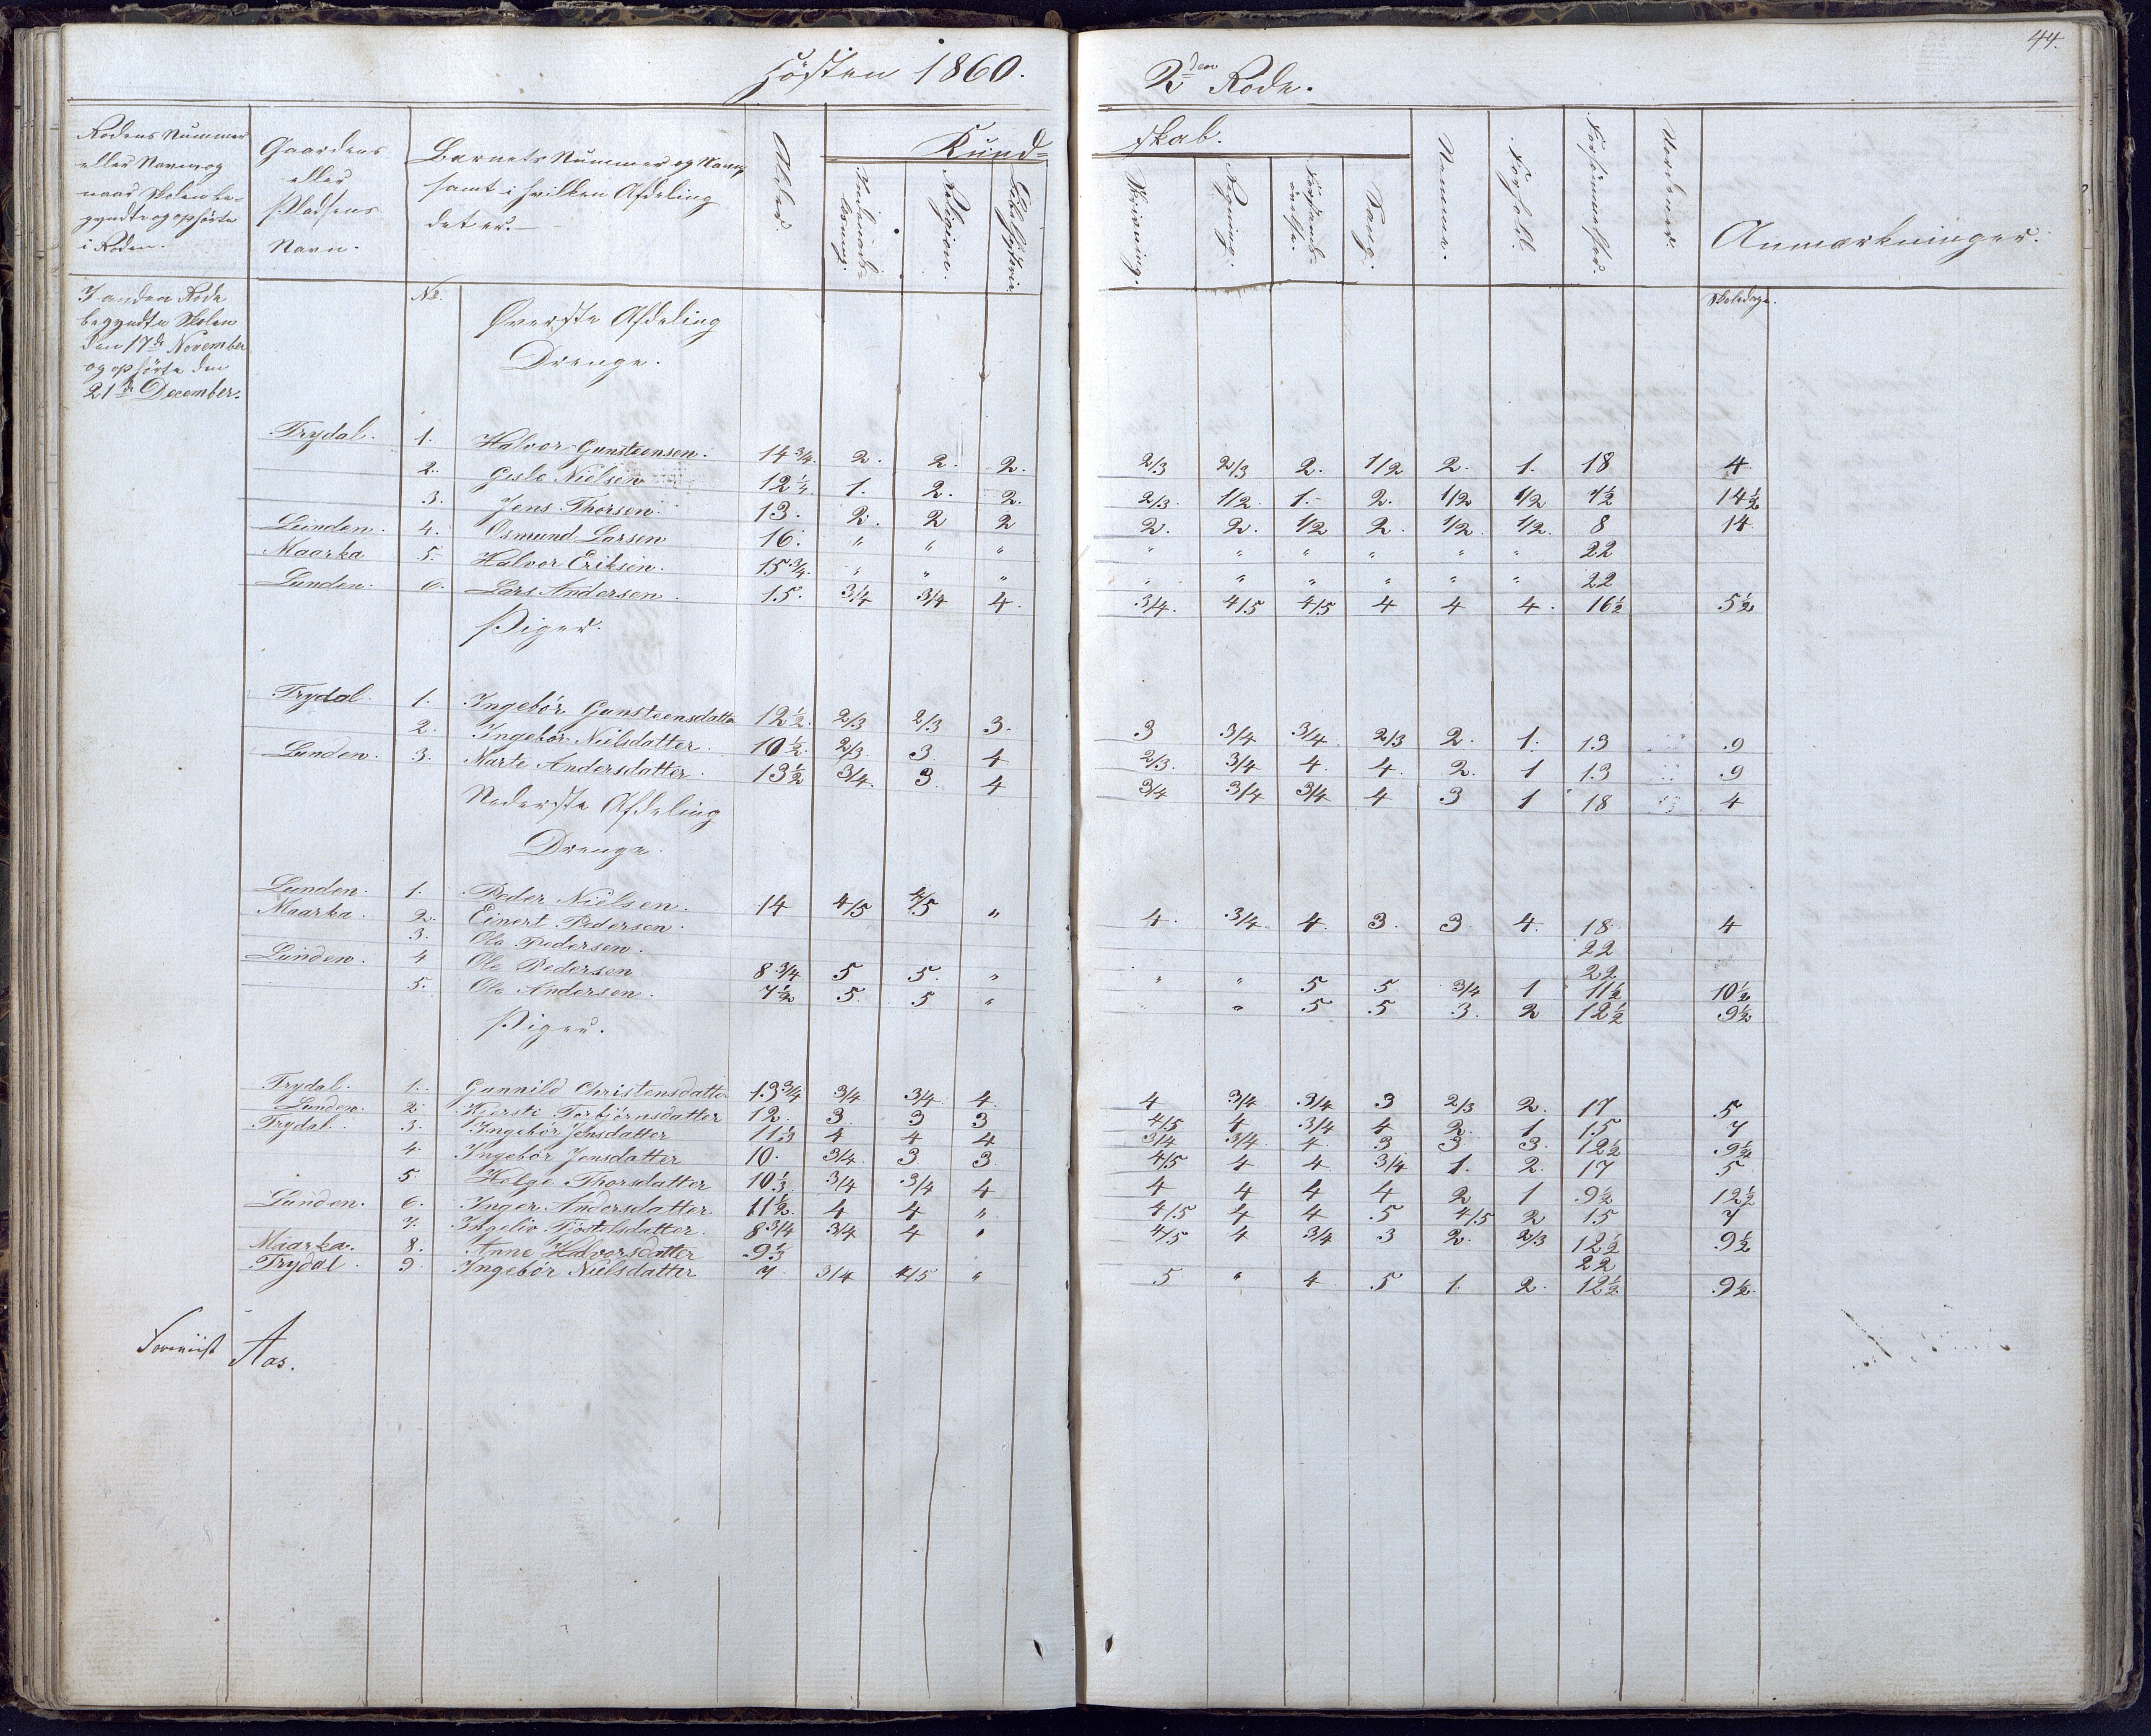 Høsten 1860.
2den Rode.
44.
Rodens Nummer eller Navn og naar Skolen begyndte og ophørte i Roden.
Gaardens eller Pladsens Navn.
Barnets Nummer og Navn samt i hvilken Afdeling det er.
Alder
Kund-
skab.
Religion.
Bibelhistorie
Skrivning.
Regning.
Sang.
Nemme.
Forhold.
Forsømmelser.
Anmærkninger.
I anden Rode
begyndte Skolen
den 17de November
og ophørte den
21de December.
No.
Øverste Afdeling
Drenge.
Skoledage.
Trydal. 1. Halvor Gunsteensen. 14 3/4. 2. 2. 2. 2/3 2/3 2. 1/2 2. 1. 18 4
2. Gisle Nielsen 12 1/4. 1. 2. 2. 2/3. 1/2. 1. 2. 1/2 1/2 7 1/2 14 1/2
3. Jens Thorsen 13. 2. 2 2 2. 2. 1/2 2. 1/2. 1/2. 8 14
Lunden. 4. Osmund Larsen 16. " " " " " " " " " 22
Maarka 5. Halvor Eriksen. 15 3/4. " " " " " " " " " 22
Lunden. 6. Lars Andersen. 15. 3/4 3/4 4. 3/4. 4/5 4/5 4 4 4. 16 1/2 5 1/2
Piger.
Trydal 1. Ingebór Gunsteensdatter 12 1/2. 2/3 2/3 3. 3 3/4 3/4. 2/3 2. 1. 13 9
2. Ingebór Nielsdatter. 10 1/2. 2/3. 3. 4 2/3. 3/4 4. 4. 2. 1 13 9
Lunden. 3. Marte Andersdatter. 13 1/2 3/4. 3. 4 3/4 3/4 3/4 4 3 1 18 4
Nederste Afdeling
Drenge.
Lunden. 1. Peder Nielsen. 14 4/5 4/5 " 4. 3/4. 4. 3. 3 4. 18. 4
Maarka. 2. Einert Pedersen. 22
3. Ole Pedersen. 22
Lunden. 4 Ole Pedersen. 8 3/4 5 5. " " " 5 5. 3/4 1 11 1/2 10 1/2
5. Ole Andersen. 7 1/2 5. 5 " " 5 5 3. 2 12 1/2 9 1/2
Piger.
Trydal. 1. Gunnild Christensdatter 13 3/4 3/4 3/4 4. 4 3/4 3/4 3 2/3 2. 17 5
Lunden. 2. Kjersti Torbjórnsdatter 12. 3 3 3 4/5 4 3/4 4 2. 1 15 7
Trydal. 3. Ingebór Jensdatter 11 1/3 4 4 4 3/4 3/4. 4 3 3 3. 12 1/2 9 1/2
4. Ingebór Jensdatter 10. 3/4. 3. 3. 4/5 4 4 3/4 1. 2. 17 5
5. Helge Thorsdatter 10 1/3 3/4 3/4 4 4 4 4 4 2 1 9 1/2 12 1/2
Lunden. 6. Inger Andersdatter. 11 1/2. 4 4 " 4/5 4 4 5 4/5 2 15 7
7. Ingelio Tjóstelsdatter. 8 3/4 3/4 4 " 4/5 4 3/4 3 2. 2/3 12 1/2 9 1/2
Maarka. 8. Anne Halvorsdatter 9 1/3 22
Trydal. 9. Ingebór Nielsdatter 7 3/4 4/5 " 5 " 4 5 1. 2. 12 1/2 9 1/2.
Foreviist Aas.